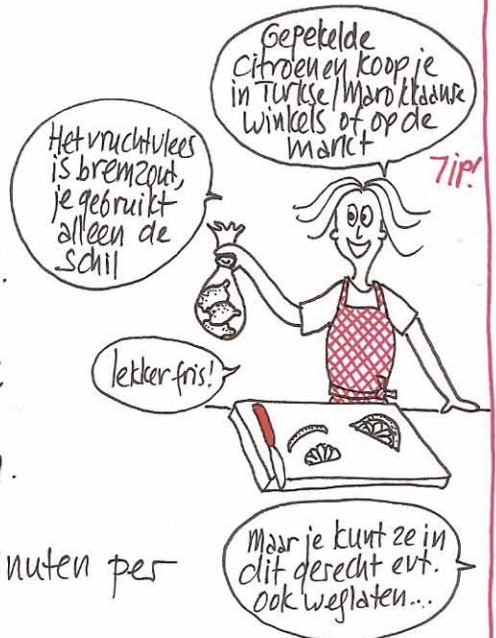 Gepekelde
citroenen koop je
in Turkse/Marokkaanse
winkels of op de
markt
Tip!
Het vruchtvlees
is bremzout,
je gebruikt
alleen de
schil
lekker fris!
nuten per
Maar je kunt ze in
dit gerecht evt.
ook weglaten...